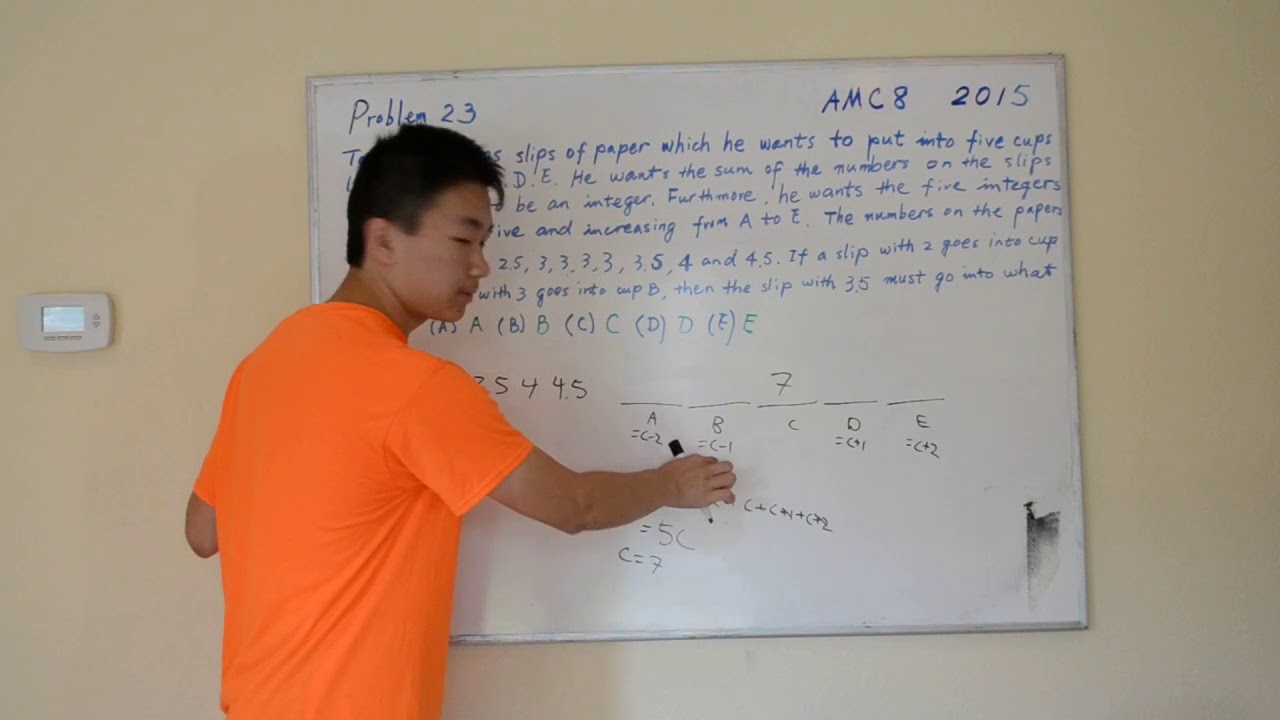 Problem 23
AMC8 2015
slips of paper which he wants to put into five cups
D. E. He wants the sum of the numbers on the slips
be an integer. Furthmore, he wants the five integers
and increasing from A to E. The numbers on the papers
2.5, 3, 3, 3, 3, 3.5, 4 and 4.5. If a slip with 2 goes into cup
with 3 goes into cup B, then the slip with 3.5 must go into what
(A) A (B) B (C) C (D) D (E) E
4 4.5
7
A B C D E
=C-2 =C-1 =C+1 =C+2
C+C+1+C+2
=5C
C=7